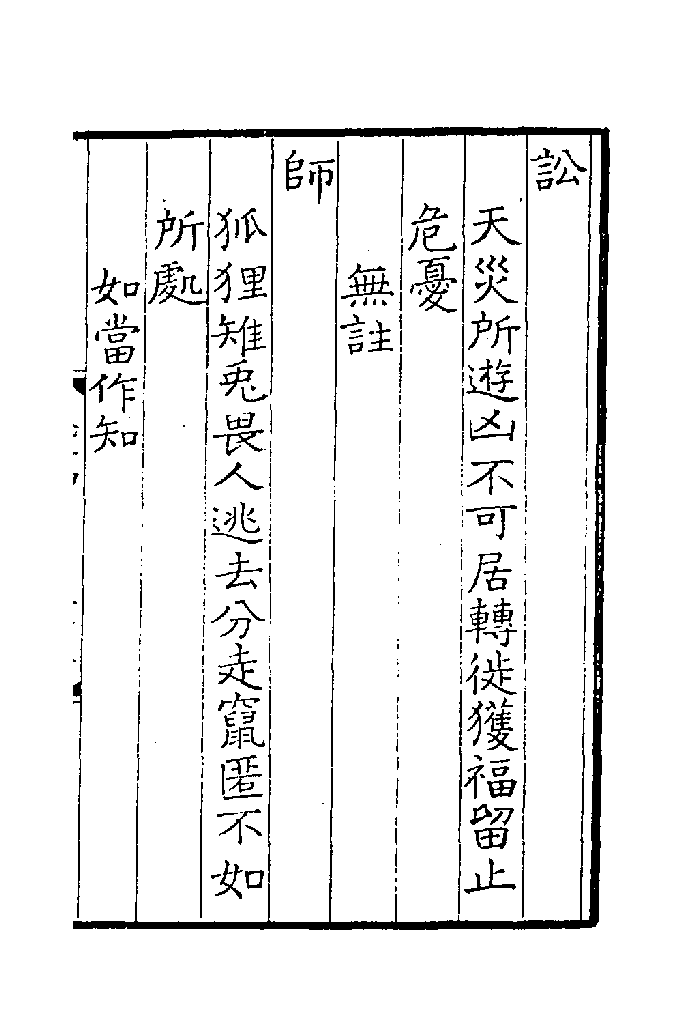 訟
天災所遊凶不可居轉徙獲福留止
危憂
無註
師
狐狸雉兎畏人逃去分走竄匿不如
所處
如當作知